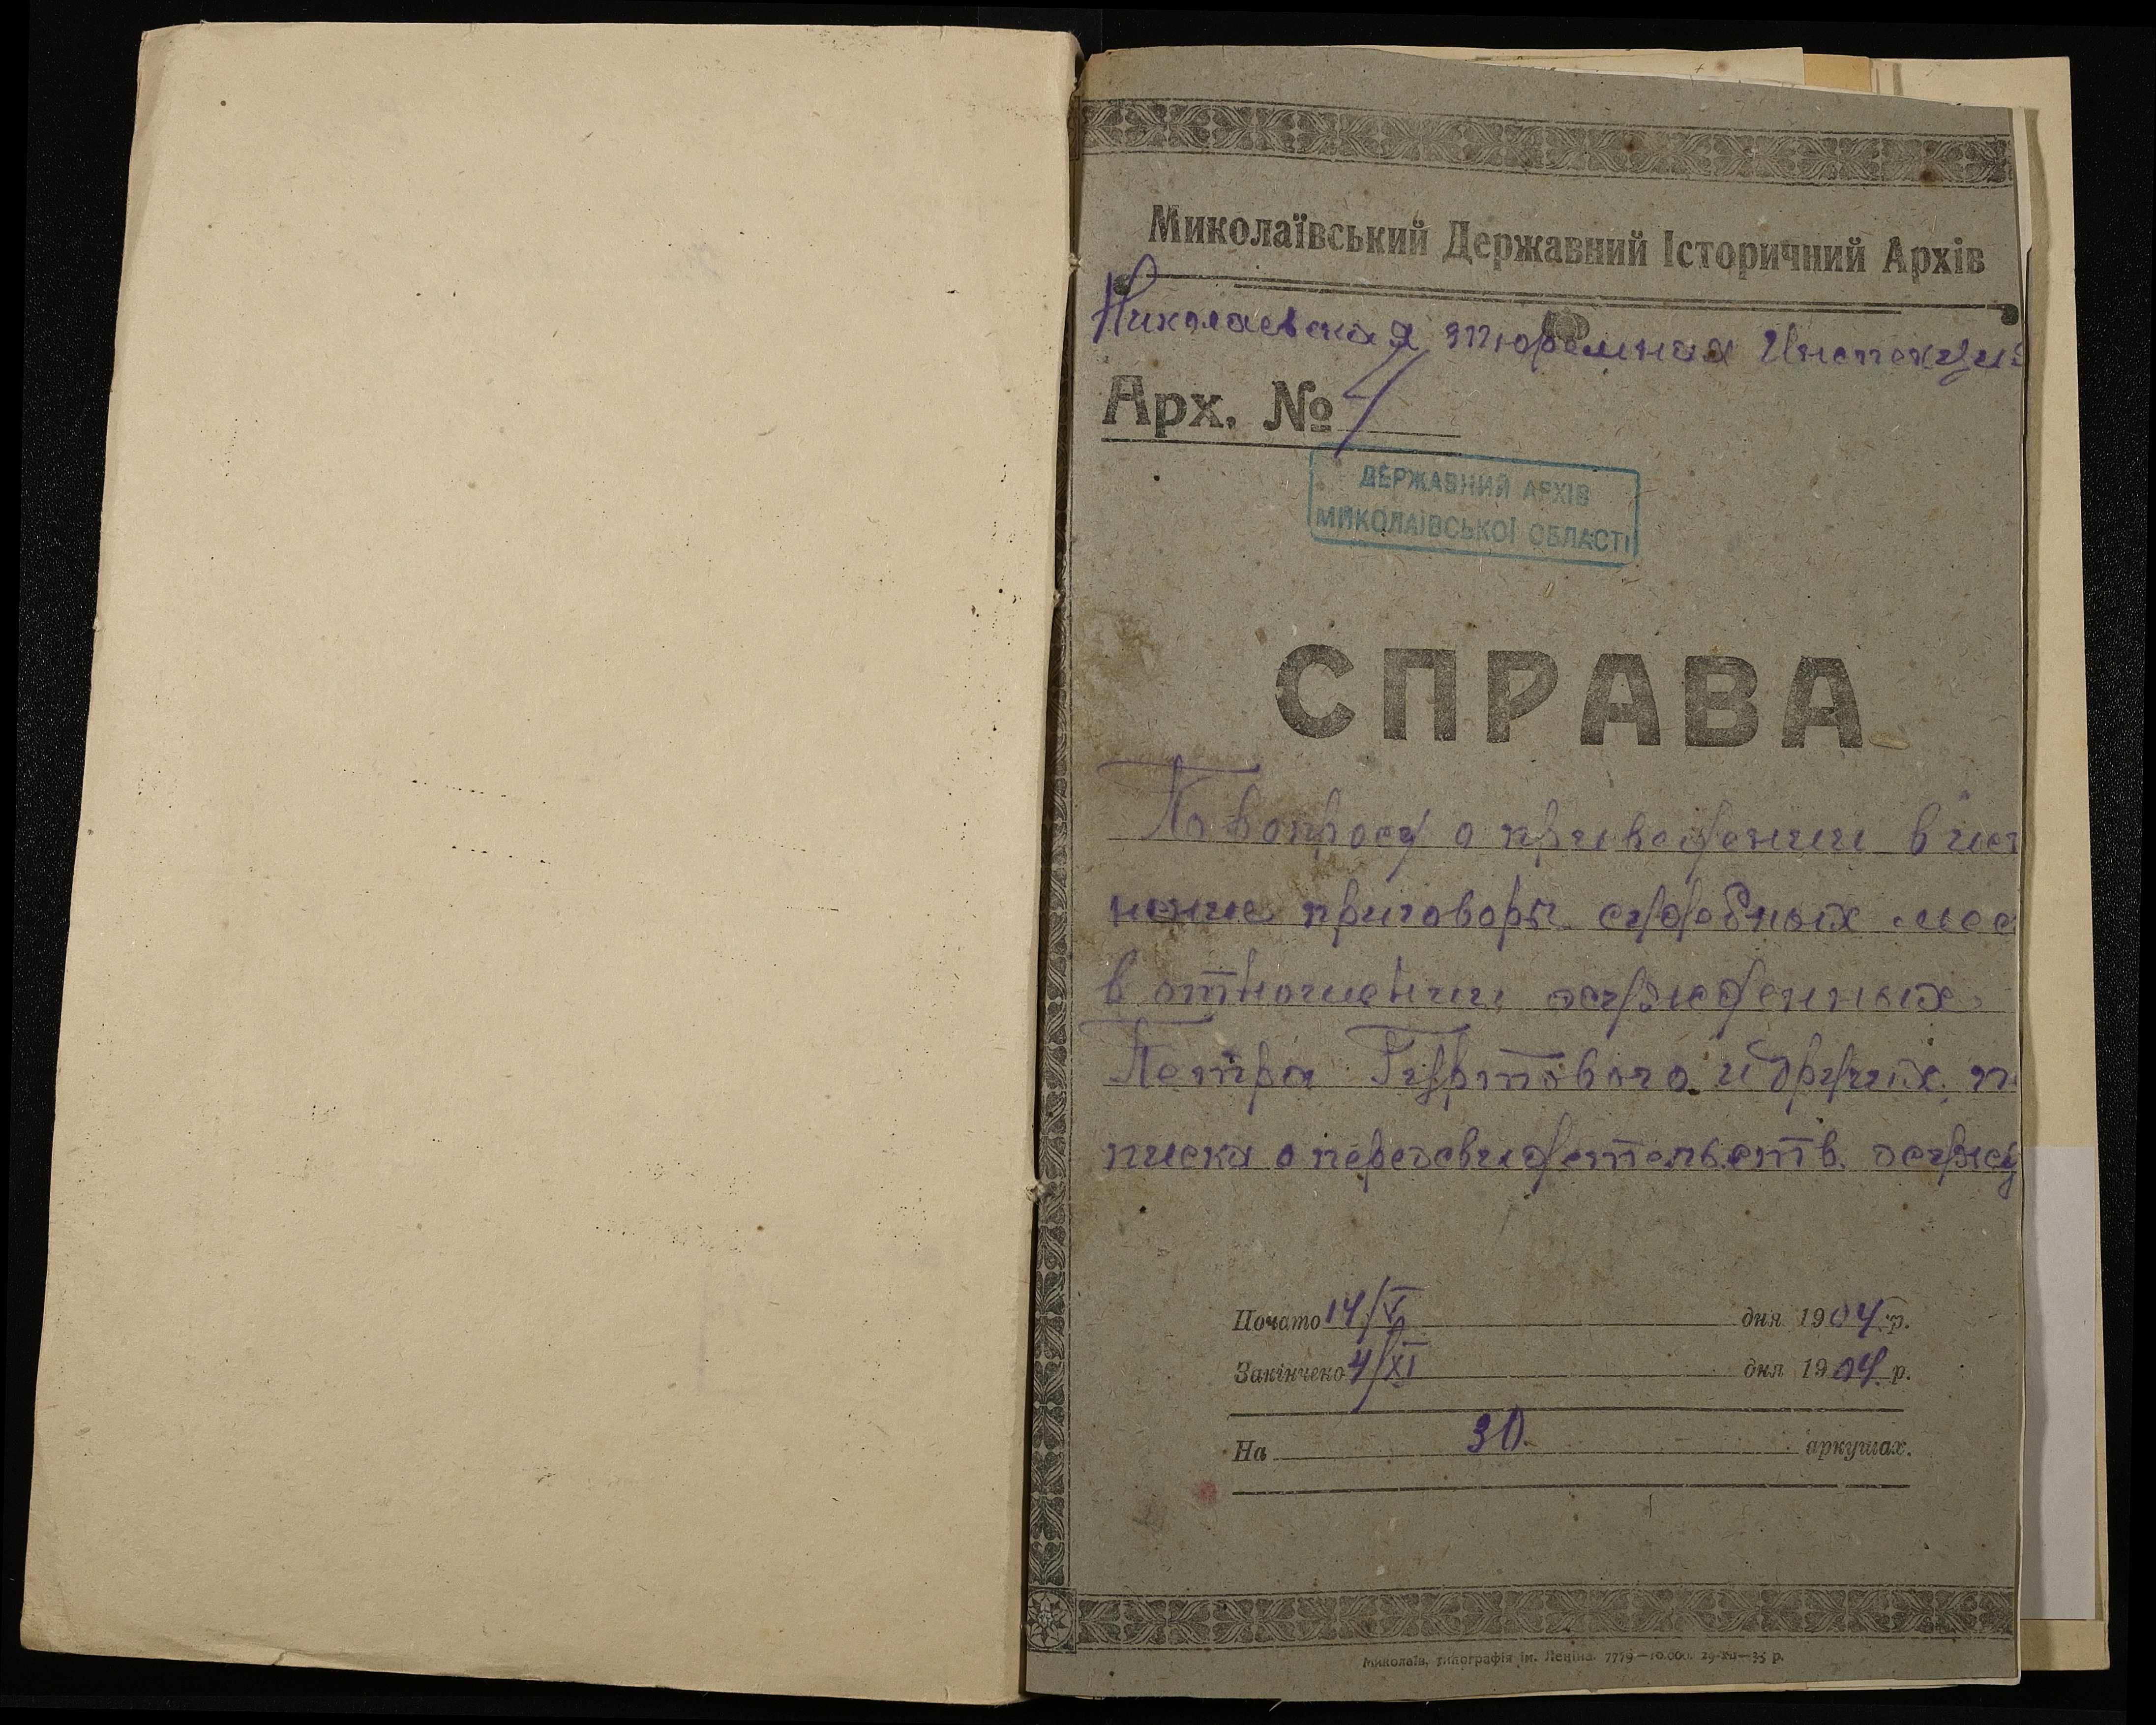 Миколаївський Державний Історичний Архів
Николаевская тюремная Инспекция
Арх. № 4
ДЕРЖАВНИЙ АРХІВ
МИКОЛАЇВСЬКОЇ ОБЛАСТІ
СПРАВА
По вопросу о приведении в исп
нение приговоры судебных мес
в отношении осужденных
Петра Гуртового и других, п
писка о переосвидетельств. осужд
Почато 14/V дня 1904 р.
Закінчено 4/XI дня 1904 р.
На 30 аркушах.
Миколаїв, типографія ім. Леніна. 7779—10.000. 29-XII—35 р.